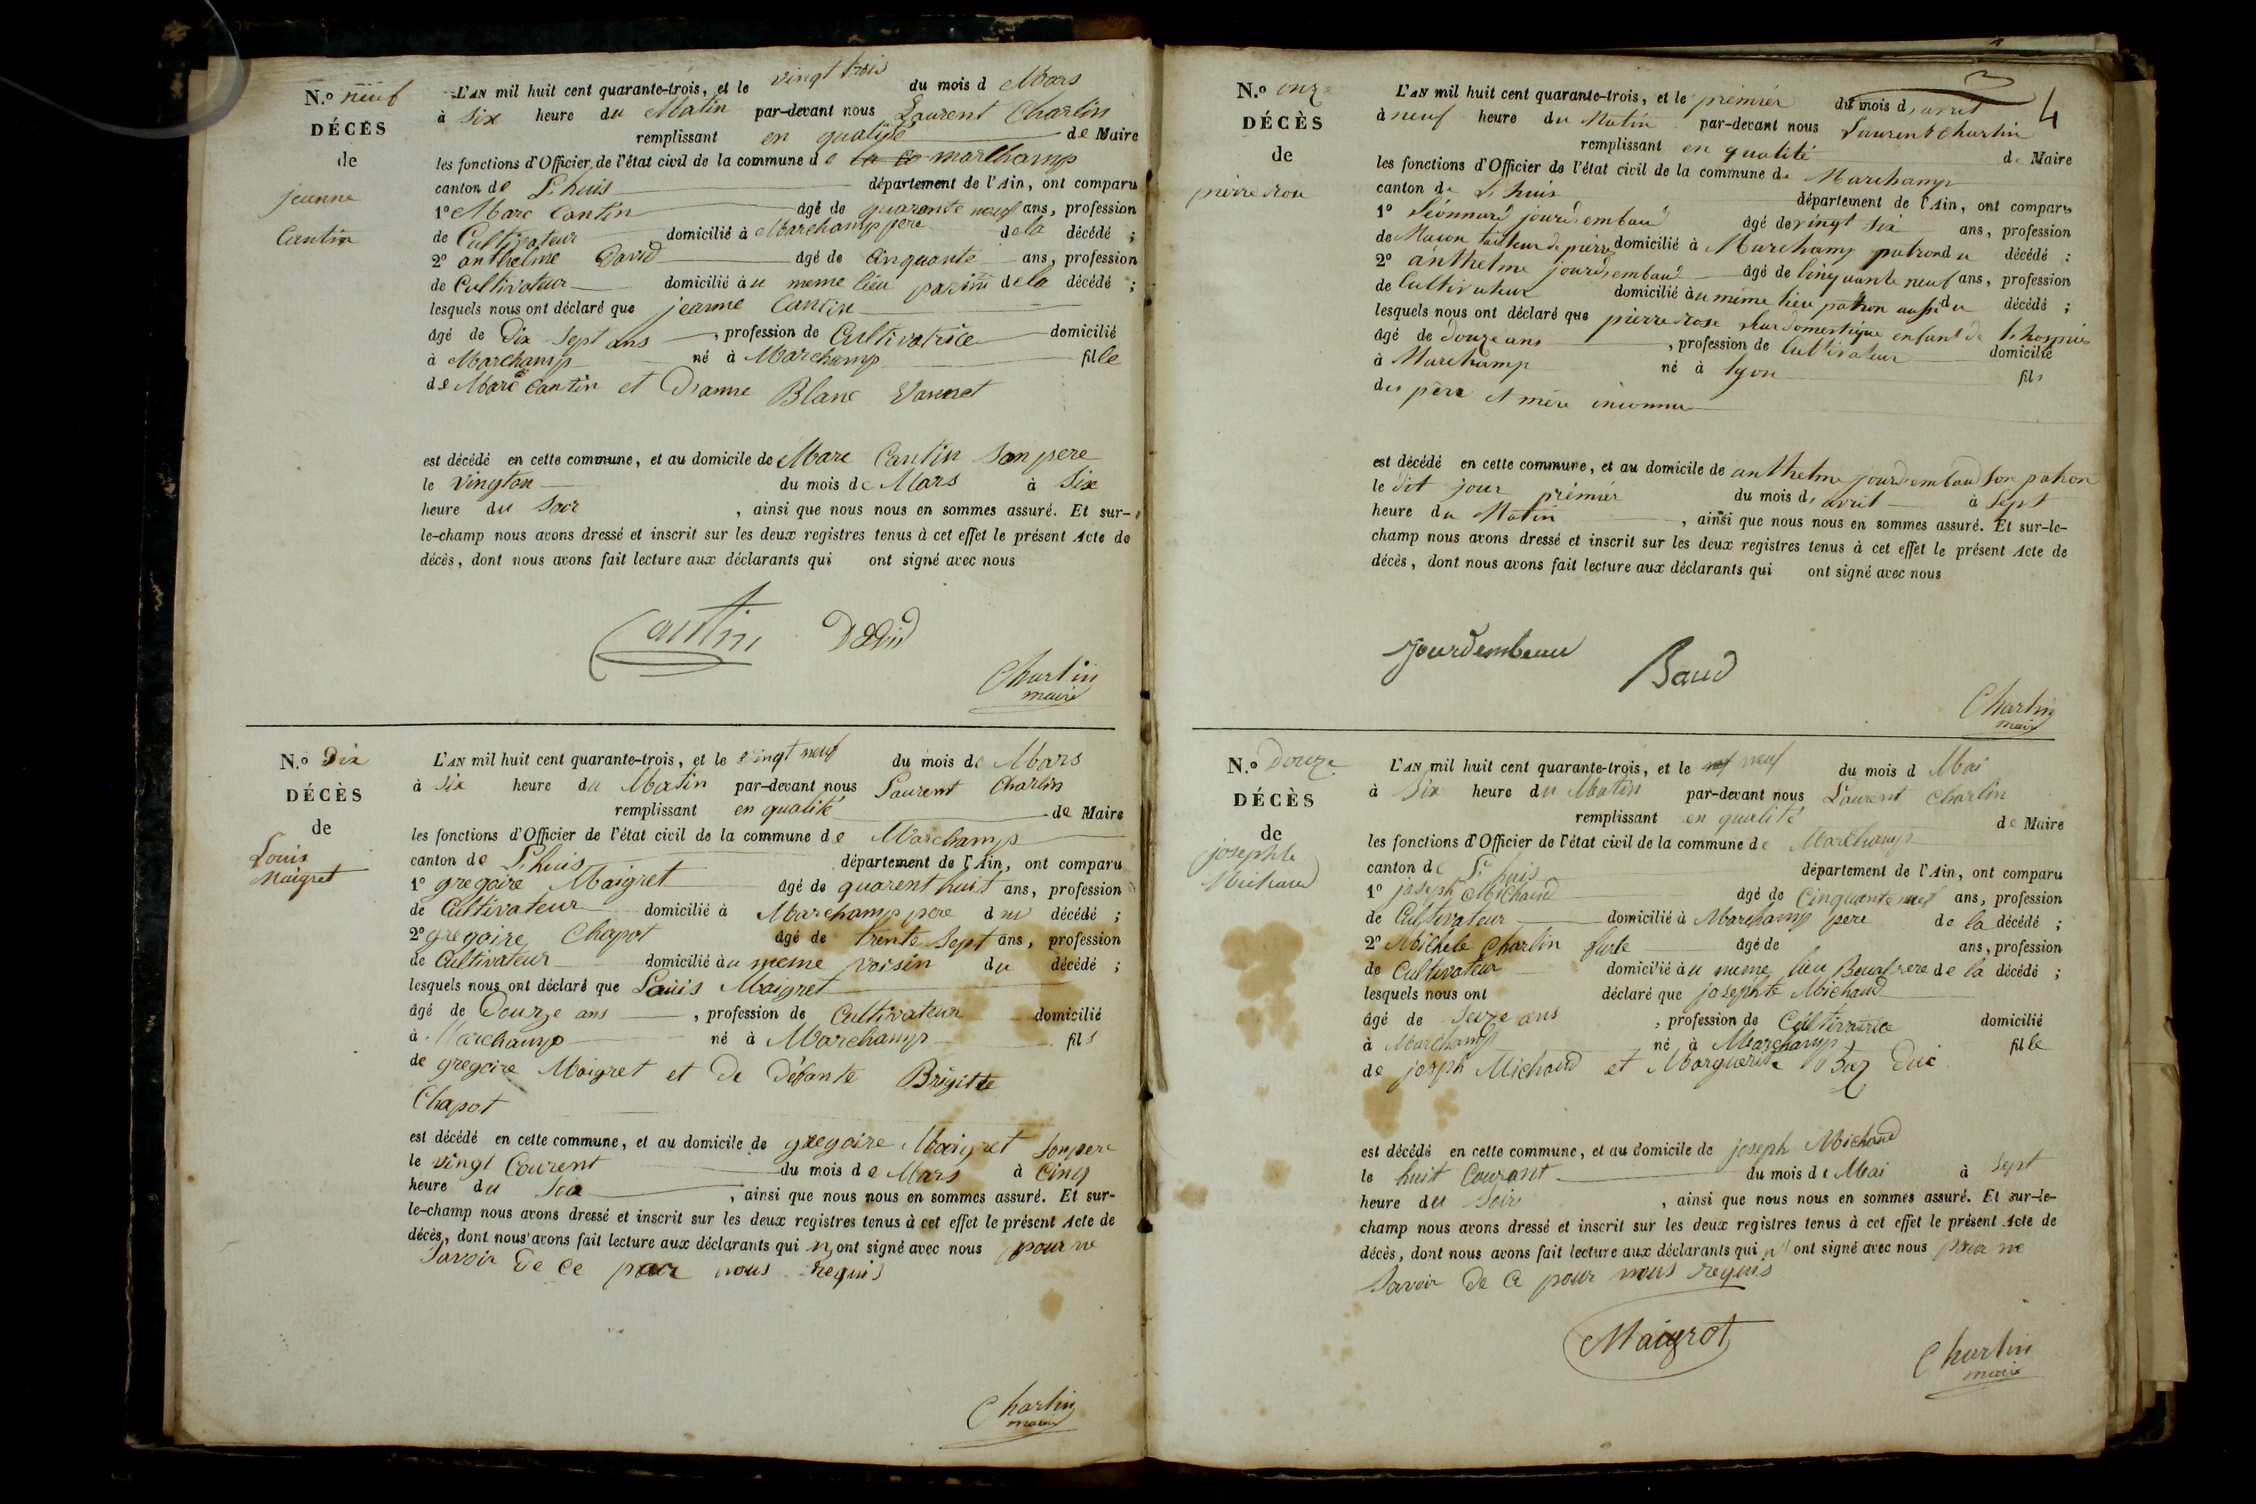 N.º neuf
DÉCÈS
de
jeanne
Cantin
L'AN mil huit cent quarante-trois, et le vingt trois du mois d Mars
à Six heure du Matin par-devant nous Laurent Charlin
remplissant en qualité de Maire
les fonctions d'Officier de l'état civil de la commune de marchamp
canton de L'huis département de l'Ain, ont comparu
1º Marc Cantin âgé de quarante neuf ans, profession
de Cultivateur domicilié à Marchamp pere de la décédé ;
2º anthelme David âgé de Cinquante ans, profession
de Cultivateur domicilié au meme lieu de la décédé ;
lesquels nous ont déclaré que jeanne Cantin
âgé de Dix Sept ans, profession de Cultivatrice domicilié
à Marchamp né à Marchamp fille
de Marc Cantin et Blanc
est décédé en cette commune, et au domicile de Marc Cantin Son pere
le du mois de Mars à Six
heure du Soir, ainsi que nous nous en sommes assuré. Et sur-
le-champ nous avons dressé et inscrit sur les deux registres tenus à cet effet le présent Acte de
décès, dont nous avons fait lecture aux déclarants qui ont signé avec nous
Cantin David
Charlin
maire
N.º Dix
DÉCÈS
de
Louis
Maigret
L'AN mil huit cent quarante-trois, et le vingt neuf du mois de Mars
à Six heure du Matin par-devant nous Laurent Charlin
remplissant en qualité de Maire
les fonctions d'Officier de l'état civil de la commune de Marchamp
canton de L'huis département de l'Ain, ont comparu
1º gregoire Maigret âgé de quarent huit ans, profession
de Cultivateur domicilié à Marchamp pere du décédé ;
2º gregoire Chapot âgé de trente Sept ans, profession
de Cultivateur domicilié au meme voisin du décédé ;
lesquels nous ont déclaré que Louis Maigret
âgé de Douze ans, profession de Cultivateur domicilié
à Marchamp né à Marchamp fils
de gregoire Maigret et De défante Brigitte
Chapot
est décédé en cette commune, et au domicile de gregoire Maigret Son pere
le vingt Courent du mois de Mars à Cinq
heure du Soir, ainsi que nous nous en sommes assuré. Et sur-
le-champ nous avons dressé et inscrit sur les deux registres tenus à cet effet le présent Acte de
décès, dont nous avons fait lecture aux déclarants qui n'ont signé avec nous pour ne
Savoir De Ce par nous requis
Charlin
maire
4
N.º onze
DÉCÈS
de
pierre rose
L'AN mil huit cent quarante-trois, et le premier du mois d'avril
à neuf heure du Matin par-devant nous Laurent Charlin
remplissant en qualité de Maire
les fonctions d'Officier de l'état civil de la commune de Marchamp
canton de L'huis département de l'Ain, ont comparu
1º Léonnard jourdembaud âgé de vingt Six ans, profession
de Maçon tailleur de pierre domicilié à Marchamp patron du décédé ;
2º anthelme jourdembaud âgé de Cinquante neuf ans, profession
de Cultivateur domicilié au même lieu patron aussi du décédé ;
lesquels nous ont déclaré que pierre rose leur domestique enfant de l'hospice
âgé de douze ans, profession de Cultivateur domicilié
à Marchamp né à Lyon fils
des père et mère inconnu
est décédé en cette commune, et au domicile de anthelme jourdembaud Son patron
le dit jour prémier du mois d'avril à Sept
heure du Matin, ainsi que nous nous en sommes assuré. Et sur-le-
champ nous avons dressé et inscrit sur les deux registres tenus à cet effet le présent Acte de
décès, dont nous avons fait lecture aux déclarants qui ont signé avec nous
Jourdembeau
Baud
Charlin
maire
N.º Douze
DÉCÈS
de
josephte
Michaud
L'AN mil huit cent quarante-trois, et le neuf du mois d Mai
à Six heure du Matin par-devant nous Laurent Charlin
remplissant en qualité de Maire
les fonctions d'Officier de l'état civil de la commune de Marchamp
canton de L'huis département de l'Ain, ont comparu
1º joseph Michaud âgé de Cinquante neuf ans, profession
de Cultivateur domicilié à Marchamp pere de la décédé ;
2º Michele Charlin âgé de ans, profession
de Cultivateur domicilié au meme lieu Beaufrere de la décédé ;
lesquels nous ont déclaré que josephte Michaud
âgé de Seize ans, profession de Cultivatrice domicilié
à Marchamp né à Marchamp fille
de joseph Michaud et Marguerite
est décédé en cette commune, et au domicile de joseph Michaud
le huit Courant du mois de Mai à Sept
heure du Soir, ainsi que nous nous en sommes assuré. Et sur-le-
champ nous avons dressé et inscrit sur les deux registres tenus à cet effet le présent Acte de
décès, dont nous avons fait lecture aux déclarants qui n'ont signé avec nous pour ne
Savoir De Ce pour nous requis
Maigrot
Charlin
maire